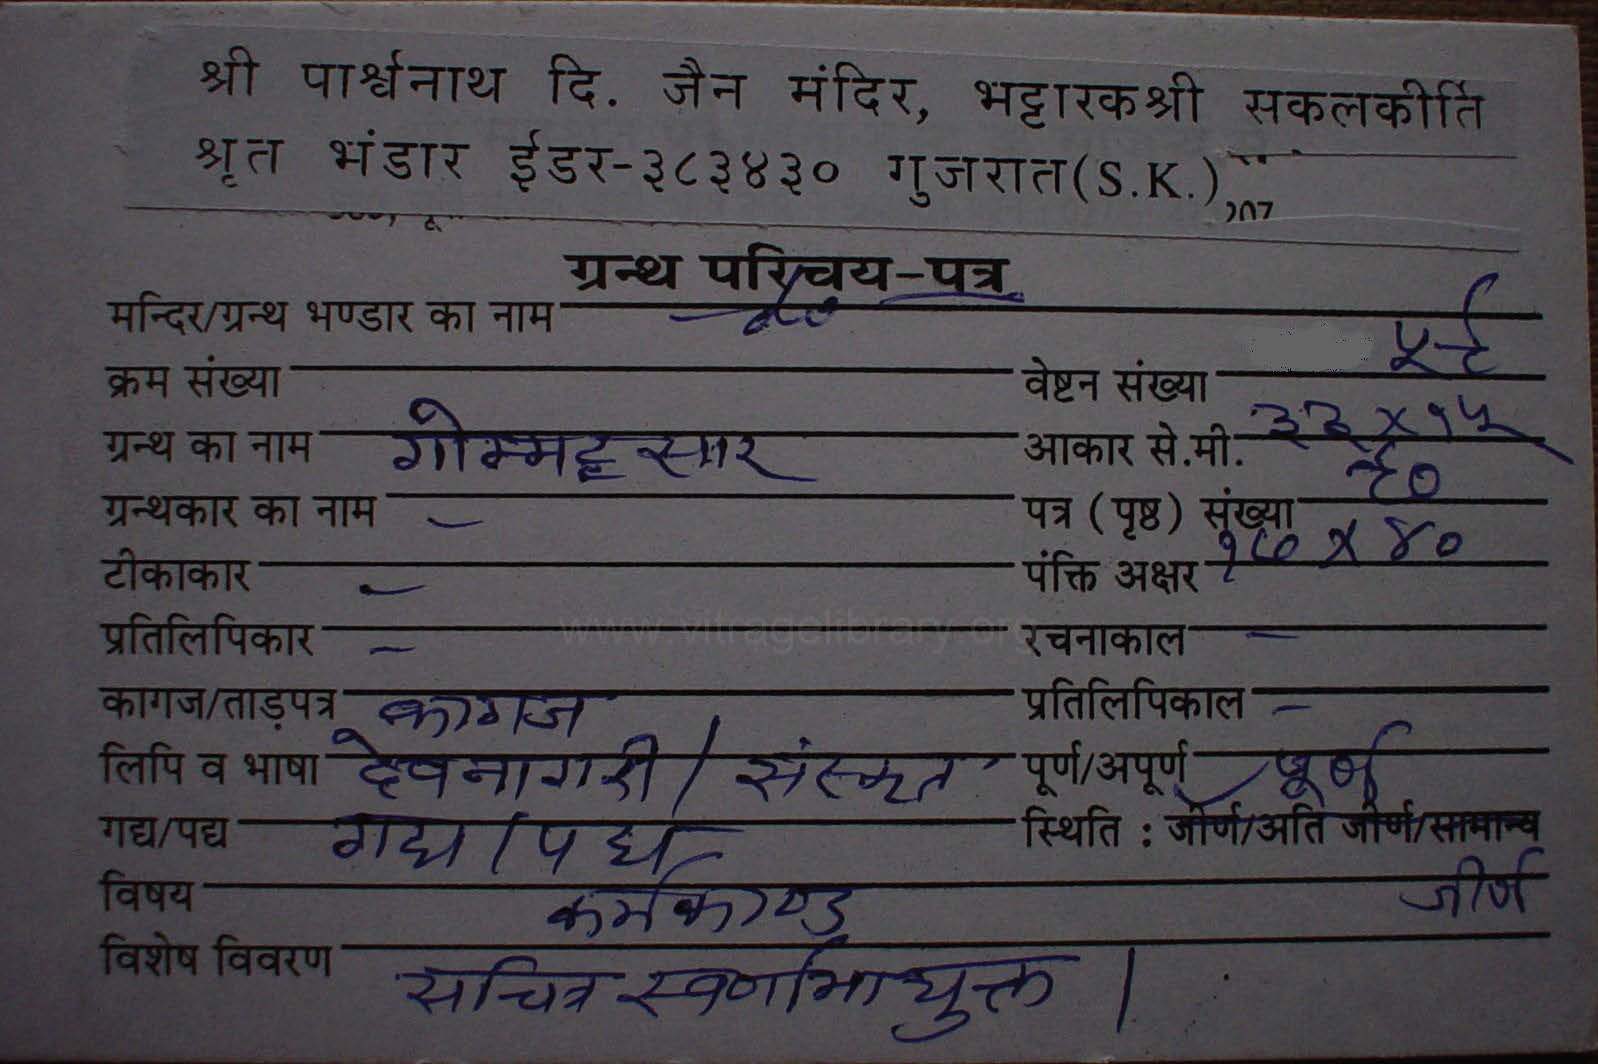 श्री पार्श्वनाथ दि. जैन मंदिर, भट्टारकश्री सकलकीर्ति
श्रृत भंडार ईडर-३८३४३० गुजरात(S.K.)
ग्रन्थ परिचय-पत्र
मन्दिर/ग्रन्थ भण्डार का नाम
क्रम संख्या वेष्टन संख्या
ग्रन्थ का नाम गोम्मट्टसार आकार से.मी. ३३ x १५
ग्रन्थकार का नाम – पत्र (पृष्ठ) संख्या ९०
टीकाकार – पंक्ति अक्षर x ४०
www.vitragelibrary.org
प्रतिलिपिकार – रचनाकाल –
कागज/ताड़पत्र कागज प्रतिलिपिकाल –
लिपि व भाषा देवनागरी / संस्कृत पूर्ण/अपूर्ण पूर्ण
गद्य/पद्य गद्य / पद्य स्थिति : जीर्ण/अति जीर्ण/सामान्य
विषय कर्मकाण्ड जीर्ण
विशेष विवरण सचित्र स्वर्णाभायुक्त ।